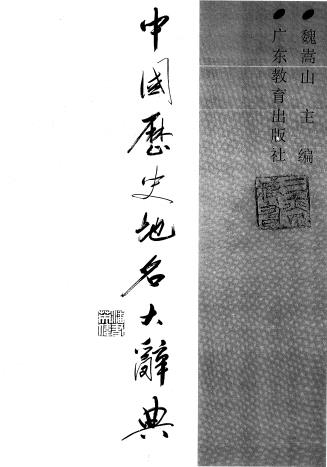 魏嵩山 主编
广东教育出版社
中國歷史地名大辭典